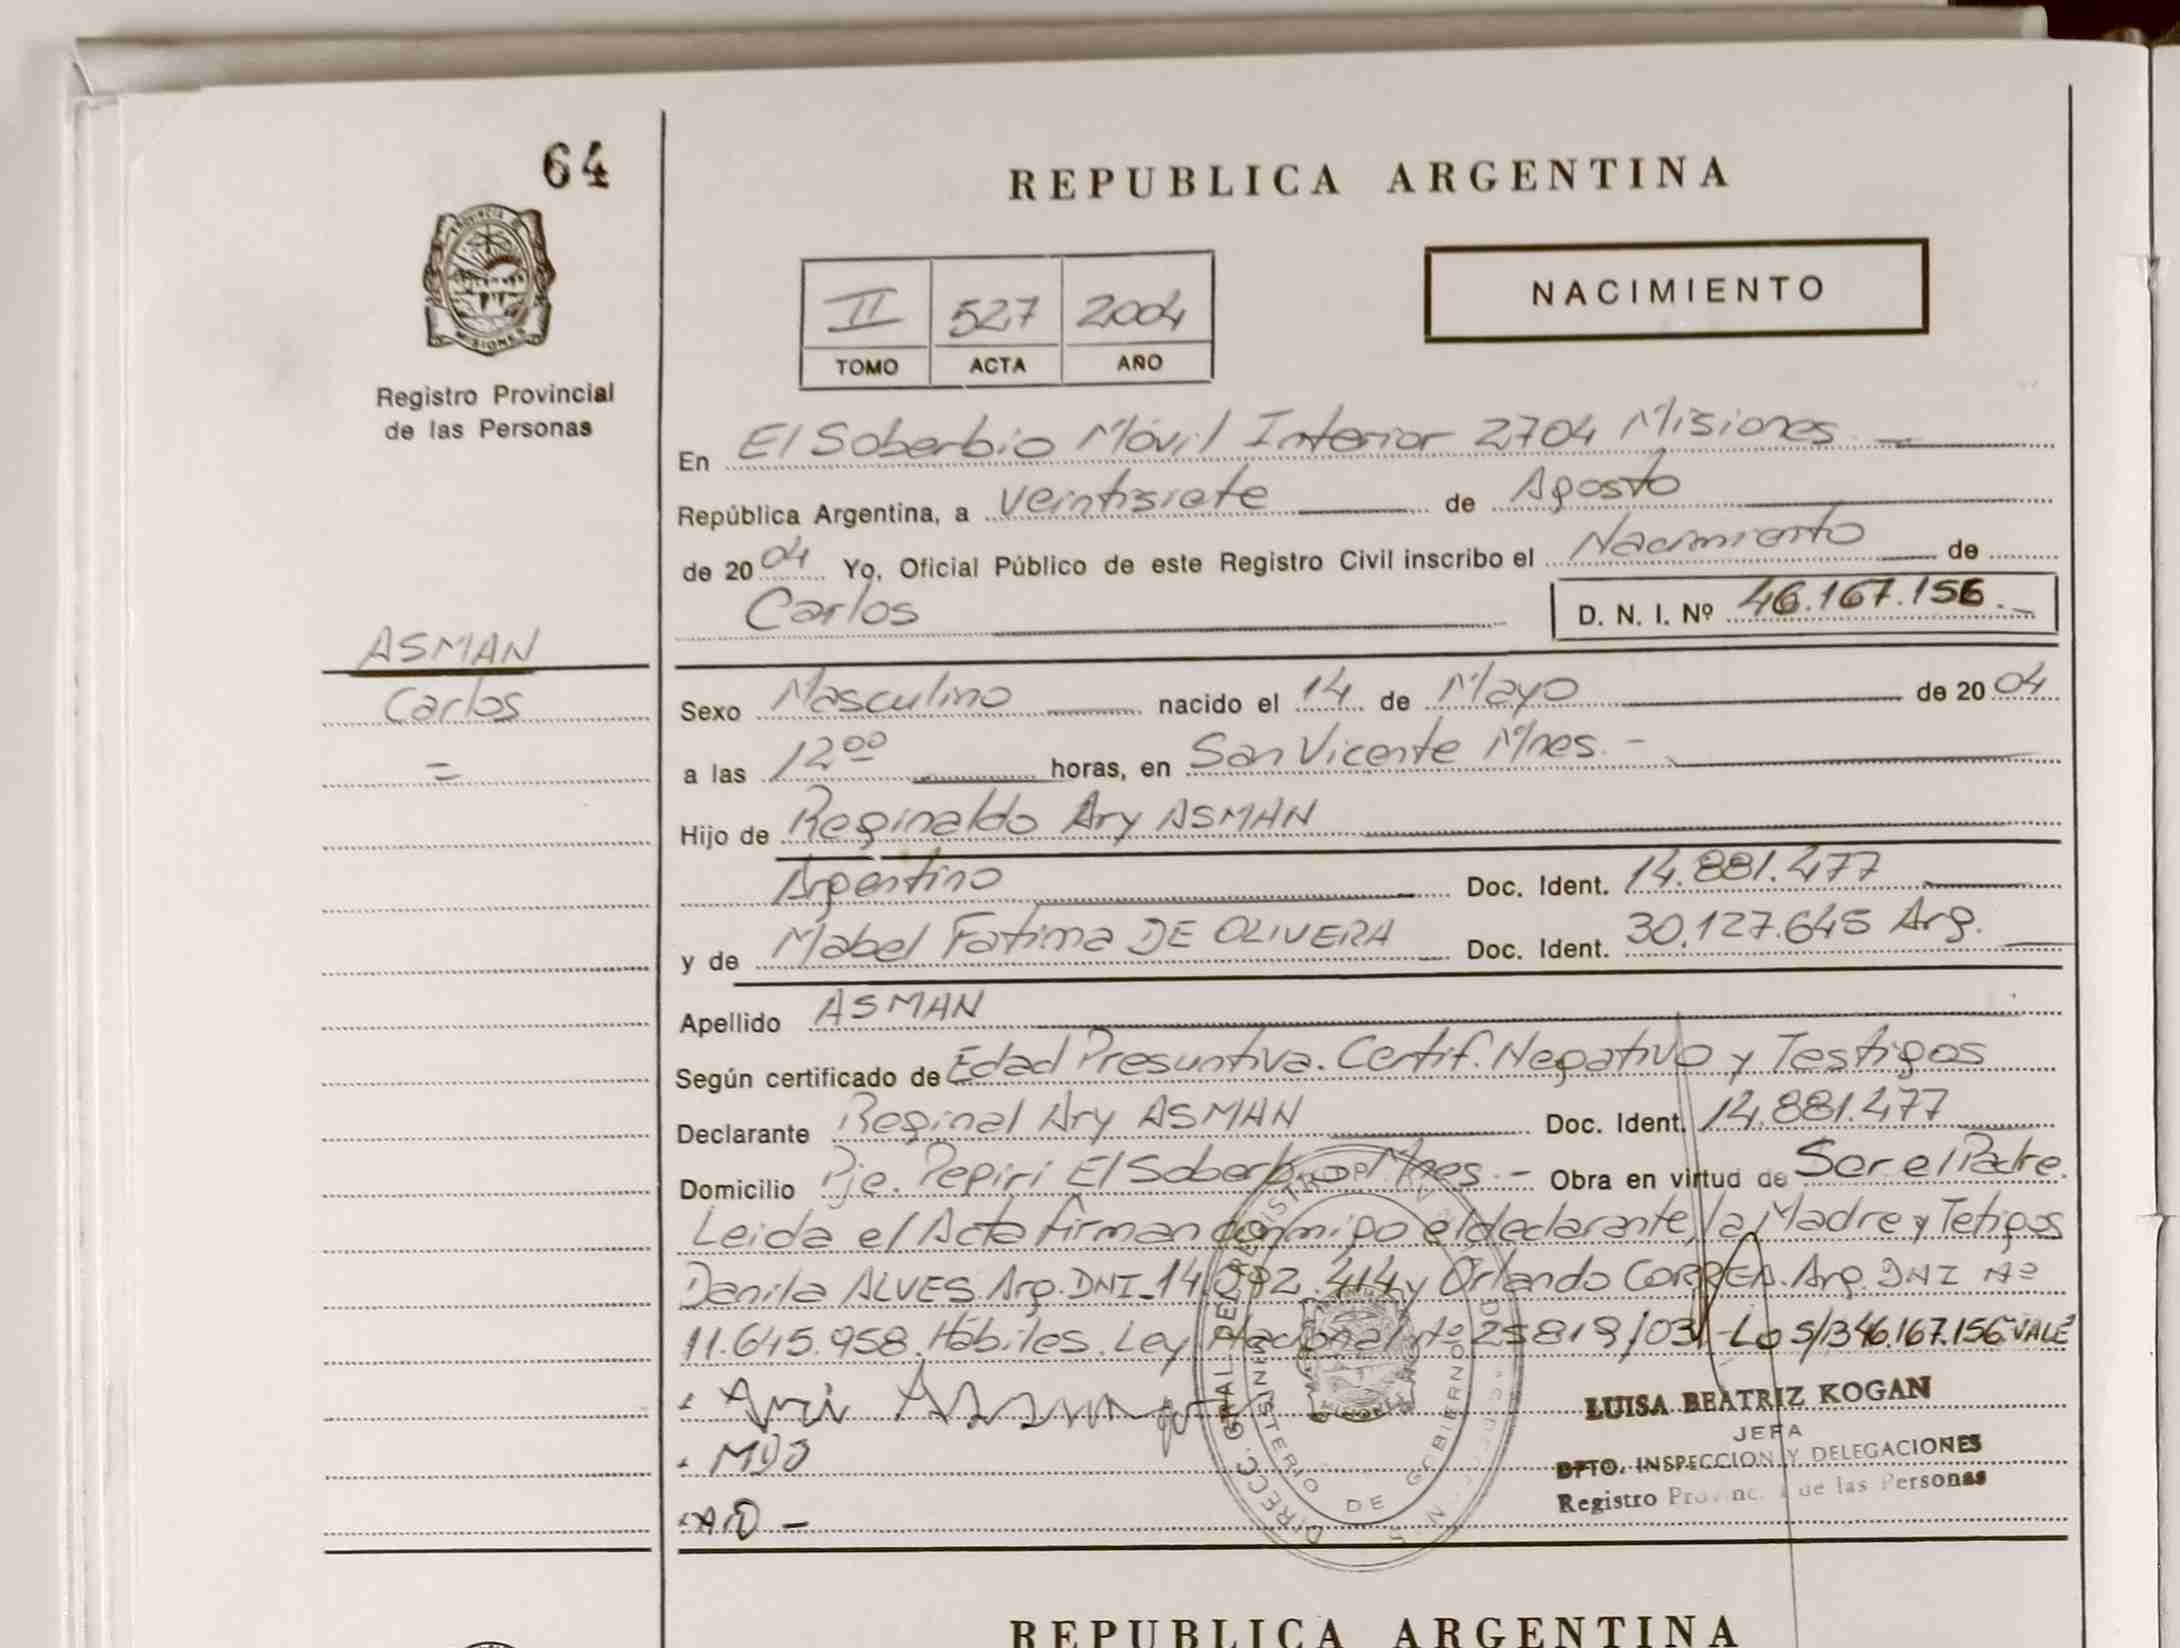 64
PROVINCIA DE
MISIONES
Registro Provincial
de las Personas
ASMAN
Carlos
=
REPUBLICA ARGENTINA
II 527 2004
TOMO ACTA AÑO
NACIMIENTO
En El Soberbio Móvil Interior 2704 Misiones
República Argentina, a veintisiete de Agosto
de 2004 Yo, Oficial Público de este Registro Civil inscribo el Nacimiento de
Carlos D. N. I. Nº 46.167.156.-
Sexo Masculino nacido el 14 de Mayo de 2004
a las 12⁰⁰ horas, en San Vicente Mnes.-
Hijo de Reginaldo Ary ASMAN
Argentino Doc. Ident. 14.881.477
y de Mabel Fatima DE OLIVERA Doc. Ident. 30.127.645 Arg.
Apellido ASMAN
Según certificado de Edad Presuntiva. Certif. Negativo y Testigos
Declarante Reginal Ary ASMAN Doc. Ident. 14.881.477
Domicilio Pje. Pepirí El Soberbio Mnes.- Obra en virtud de Ser el Padre.
Leida el Acta firman conmigo el declarante, la Madre y Tetigos
Danila ALVES. Arg. DNI 14. .414 y Orlando CORREA. Arg. DNI Nº
11.645.958. Hábiles. Ley Nacional Nº 25819/03.- Lo S/B 46.167.156 VALE
Ari
MDO
AD -
DIRECC. GRAL. DE REGISTRO
MINISTERIO DE GOBIERNO
LUISA BEATRIZ KOGAN
JEFA
DPTO. INSPECCION Y DELEGACIONES
Registro Provincial de las Personas
REPUBLICA ARGENTINA